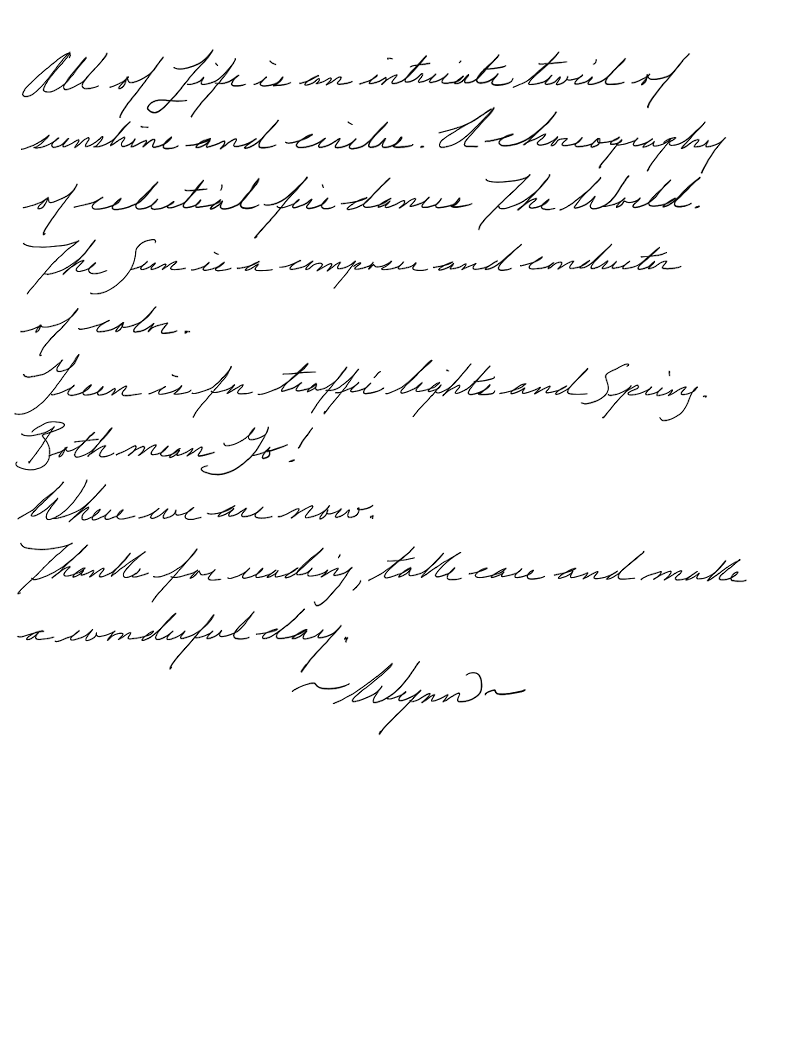 All of Life is an intricate twirl of
sunshine and circles. A choreography
of celestial fire dances The World.
The Sun is a composer and conductor
of color.
Green is for traffic lights and Spring.
Both mean Go!
Where we are now.
Thanks for reading, take care and make
a wonderful day.
~Wynn~